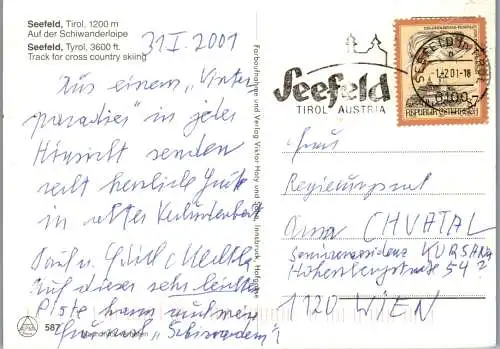 Seefeld, Tirol, 1200 m
Auf der Schiwanderloipe
Seefeld, Tyrol, 3600 ft.
Track for cross country skiing
31 I. 2001
Aus einem „Winter
paradies" in jeder
Hinsicht senden
recht herzliche Grüße
in alter Verbundenheit
Paul u. Edith
Auf dieser sehr leichten
Piste kann
"Schiwandern"!
587
Farbaufnahmen und Verlag Innsbruck, Hofgasse
Seefeld
TIROL AUSTRIA
SEEFELD IN TIROL
1.2.01-18
6100
REPUBLIK ÖSTERREICH
Frau
Regierungsrat
Anna CHVATAL
Seniorenresidenz KURSANA
Hohenbergstraße 54 2
1120 WIEN